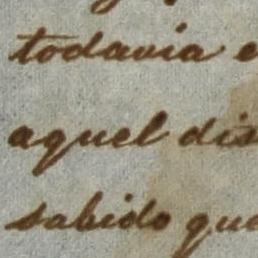 todavia e
aquel dis
sabido que